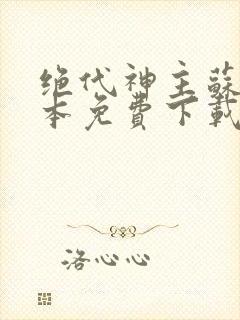 绝代神主蘇
本免費下載
洛心心